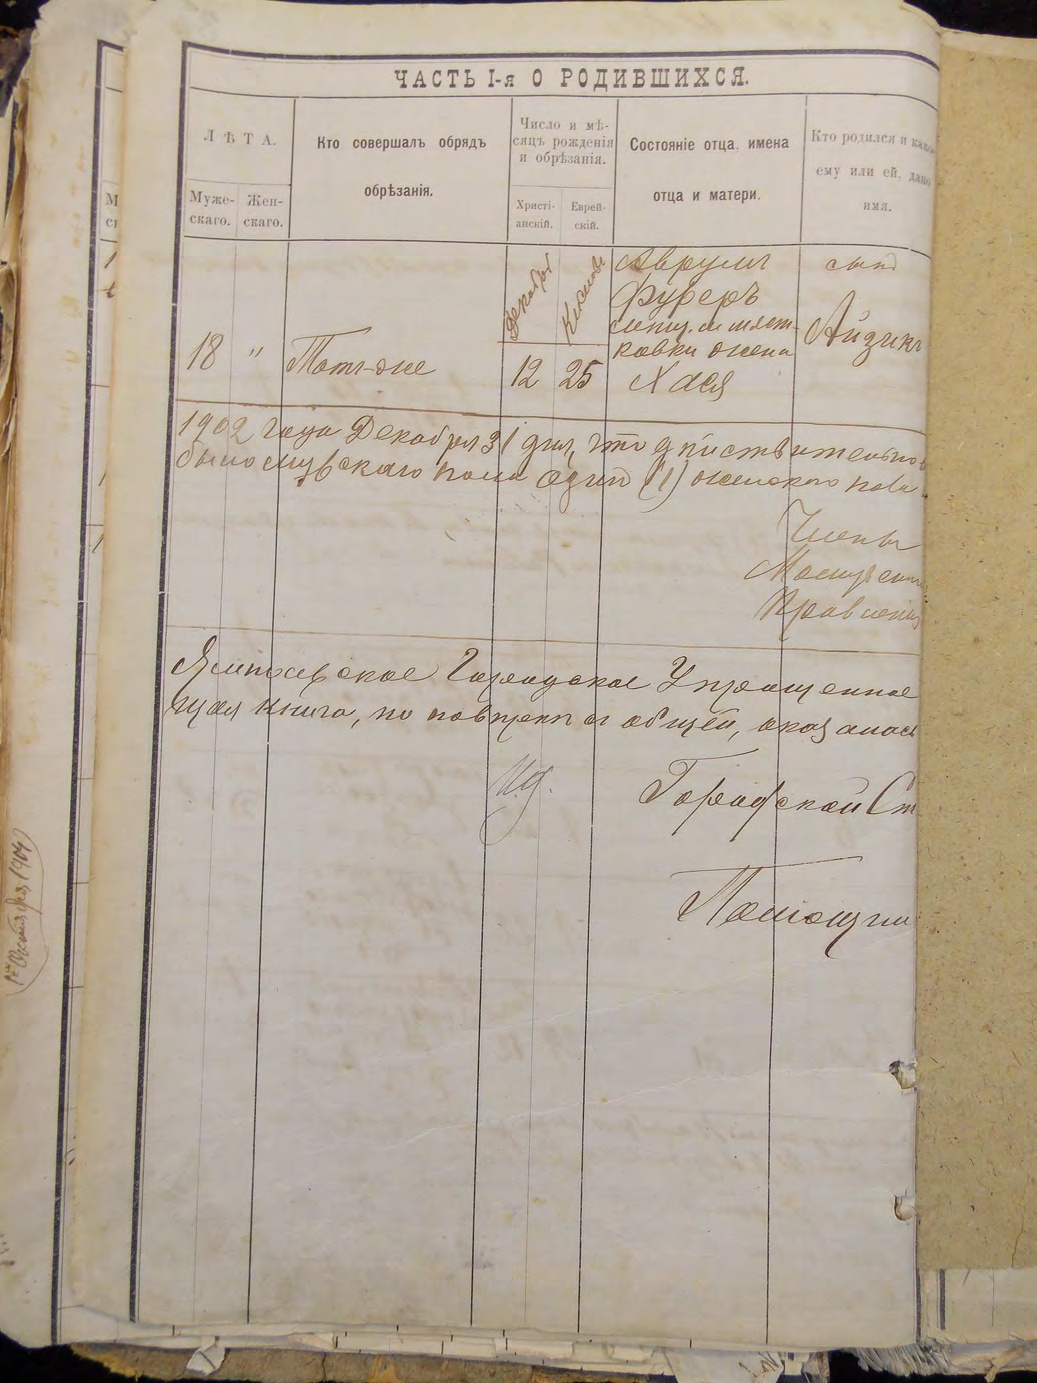 ЧАСТЬ I-я О РОДИВШИХСЯ.
ЛѢТА.
Муже-
скаго.
Жен-
скаго.
Кто совершалъ обрядъ
обрѣзанія.
Число и мѣ-
сяцъ рожденія
и обрѣзанія.
Христі-
анскій.
Еврей-
скій.
Состояніе отца, имена
отца и матери.
Кто родился и како
ему или ей, дано
имя.
18 " Тотъ-же
Декабря
12
25
Аврумъ
Фуферъ
жена
Хася
сынъ
Айзикъ
1902 года Декабря 31 дня, что дѣйствительно
было мужскаго пола одинъ (1) женскаго пола
Члены
Правленія
Ямпольское Городское Упрощенное
щая книга, по общей, оказалась
И.д. Городской Ст
Помощни
1904